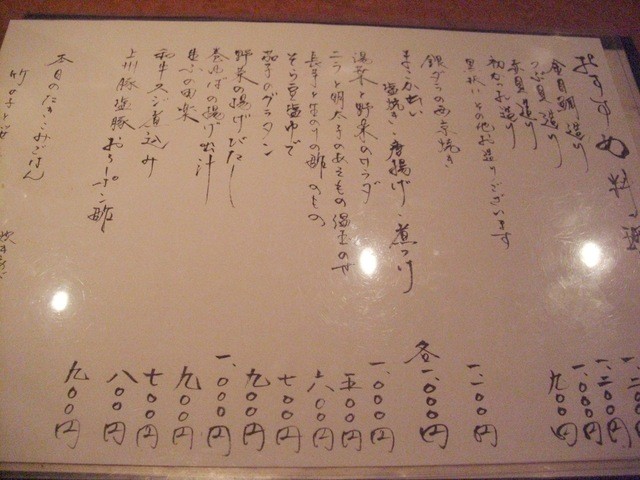 おすすめ料理
金目鯛造り 一、二〇〇円
つぶ貝造り 一、二〇〇円
赤貝造り 一、〇〇〇円
初がつお造り 九〇〇円
黒板にその他お造りございます
銀ダラの西京焼き 一、二〇〇円
塩焼き・唐揚げ・煮つけ 各一、〇〇〇円
湯葉と野菜のサラダ 一、〇〇〇円
ニラと明太子のあえもの温玉のせ 五〇〇円
長芋と生のりの酢のもの 六〇〇円
そら豆塩ゆで 七〇〇円
茄子のグラタン 九〇〇円
野菜の揚げびたし 一、〇〇〇円
巻湯ばの揚げ出汁 九〇〇円
生ふの田楽 七〇〇円
和牛スジ煮込み 八〇〇円
上州豚塩豚おろしポン酢 九〇〇円
本日のたきこみごはん
竹の子と